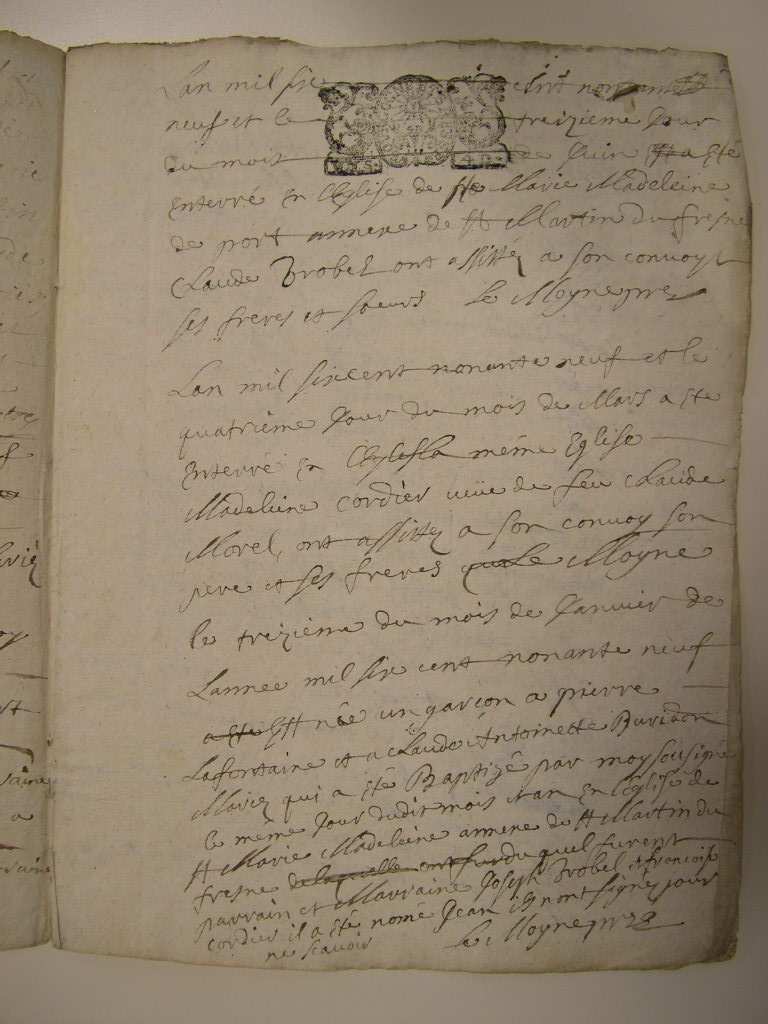 Lan mil six cent nonante
neuf et le treizieme Jour
du mois de Juin a Eté
Enterré En L'Eglise de Ste Marie Madeleine
de port annexe de St Martin du fresne
Claude Brobel ont assisté a son convoy
ses freres et soeurs le Moyne pre
Lan mil six cent nonante neuf et le
quatrieme Jour du mois de Mars a Eté
Enterré En la méme Eglise
Madeleine Cordier veüe de feu Claude
Morel, ont assistez a son convoy son
pere et ses freres Le Moyne
le treizieme du mois de Janvier de
Lannee mil six cent nonante neuf
Est née un garçon a pierre
Lafontaine et a Claude Antoinette Buridon
Mariez qui a Eté Baptizé par moy sousigné
le méme Jour dudit mois et an En L'Eglise de
St Marie Madeleine annexe de St Martin du
fresne duquel furent
parrain et Marraine Joseph Brobel et francoise
Cordier il a Eté nomé Jean ils nont signéz pour
ne scavoir le Moyne pre